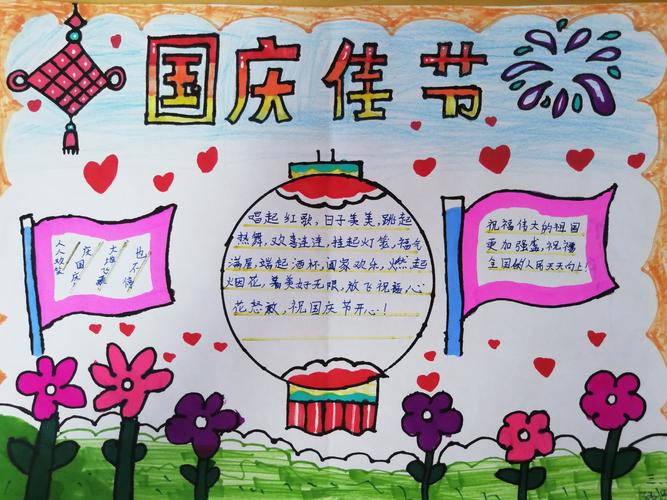 国庆佳节
人人欢笑
庆国庆
也不停
唱起红歌，日子美美，跳起
热舞，欢喜连连，挂起灯笼，福气
满屋，端起酒杯，阖家欢乐，燃起
烟花，着美好无限，放飞祝福心
花怒放，祝国庆节开心！
祝福伟大的祖国
更加强盛，祝福
全国的人民天天向上！